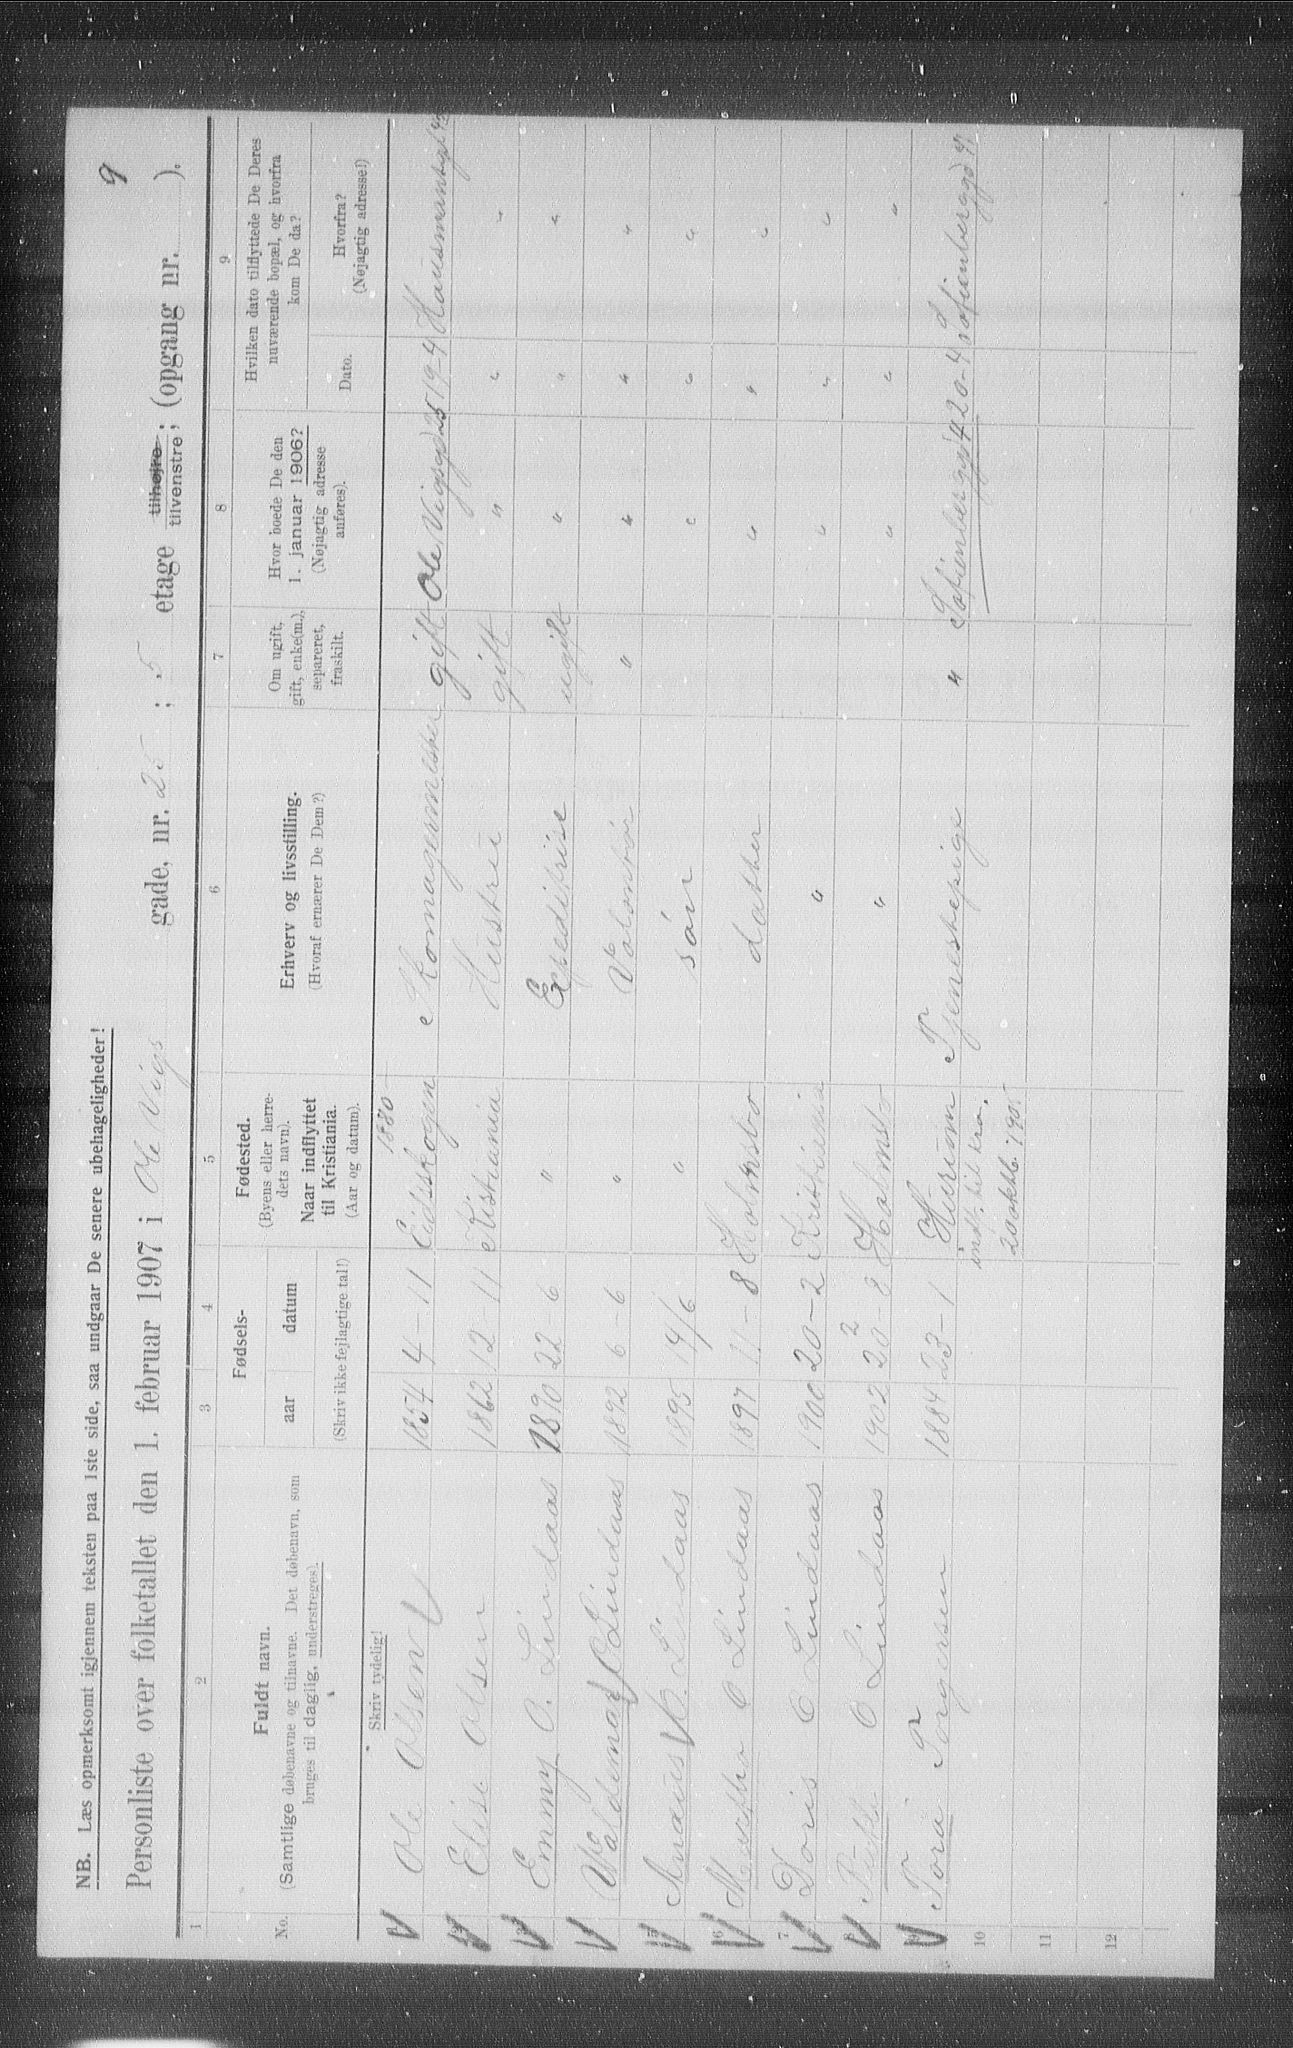 9
NB. Læs opmerksomt igjennem teksten paa 1ste side, saa undgaar De senere ubehageligheder!
Personliste over folketallet den 1. februar 1907 i Ole Vigs gade, nr. 25 ; 5 etage tilhøjre tilvenstre; (opgang nr. ).
1 2 3 4 5 6 7 8 9
No.
Fuldt navn.
(Samtlige døbenavne og tilnavne. Det døbenavn, som
bruges til daglig, understreges).
Fødsels-
aar datum
(Skriv ikke fejlagtige tal!)
Fødested.
(Byens eller herre-
dets navn).
Naar indflyttet
til Kristiania.
(Aar og datum).
Erhverv og livsstilling.
(Hvoraf ernærer De Dem?)
Om ugift,
gift, enke(m.),
separeret,
fraskilt.
Hvor boede De den
1. januar 1906?
(Nøjagtig adresse
anføres).
Hvilken dato tilflyttede De Deres
nuværende bopæl, og hvorfra
kom De da?
Dato.
Hvorfra?
(Nøjagtig adresse!)
Skriv tydelig!
1880
1 Ole Olsen 1854 4-11 Eidsskogen Skomagermester gift Ole Vigsgd 25 19-4
2 Elise Olsen 1862 12-11 Kristiania Hustru gift " " "
3 Emmy O. Lindaas 1890 22-6 " Expeditrise ugift " " "
4 Valdemar O Lindaas 1892 6-6 " Volontør " " " "
5 O. Lindaas 1895 14/6 " søn " " "
6 O Lindaas 1897 11-8 Holmsbo datter " " "
7 Doris O Lindaas 1900 20-2 Kristiania " " " "
8 O Lindaas 1902 20-8 Holmsbo " " " "
2
9 Tora Torgersen 1884 23-1 Hurum Tjenestepige " Sofienberggd 4 20-4
indf. til Kra.
20 oktb. 1905
10
11
12